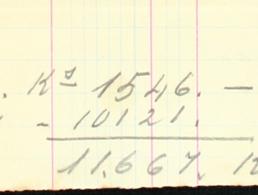 . Ks 1546. —
- 10121.
11.667. K